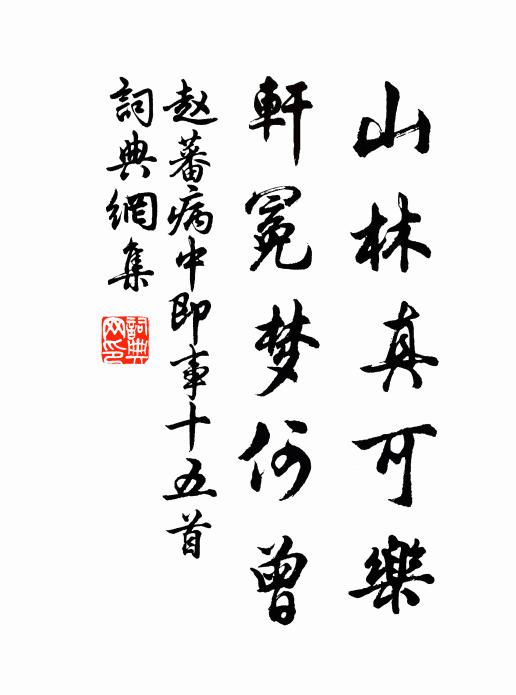 山林真可樂
軒冕梦何曾
赵蕃病中即事十五首
詞典網集
詞典网印